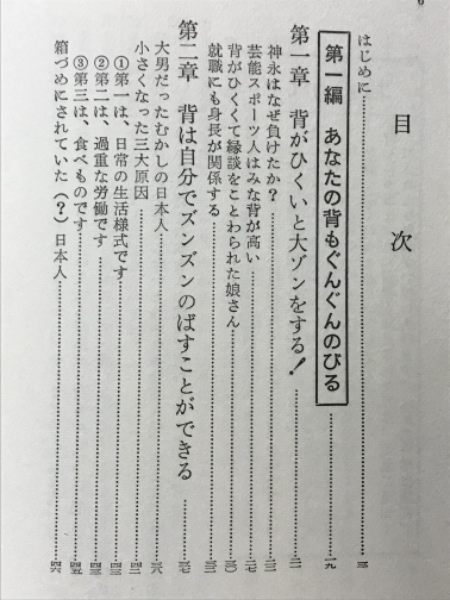 6
目次
はじめに……三
第一編 あなたの背もぐんぐんのびる……一九
第一章 背がひくいと大ゾンをする!……二一
神永はなぜ負けたか?……二二
芸能スポーツ人はみな背が高い……二七
背がひくくて縁談をことわられた娘さん……三〇
就職にも身長が関係する……三三
第二章 背は自分でズンズンのばすことができる……三七
大男だったむかしの日本人……三八
小さくなった三大原因……四二
①第一は、日常の生活様式です……四三
②第二は、過重な労働です……四三
③第三は、食べものです……四五
箱づめにされていた(?)日本人……四六